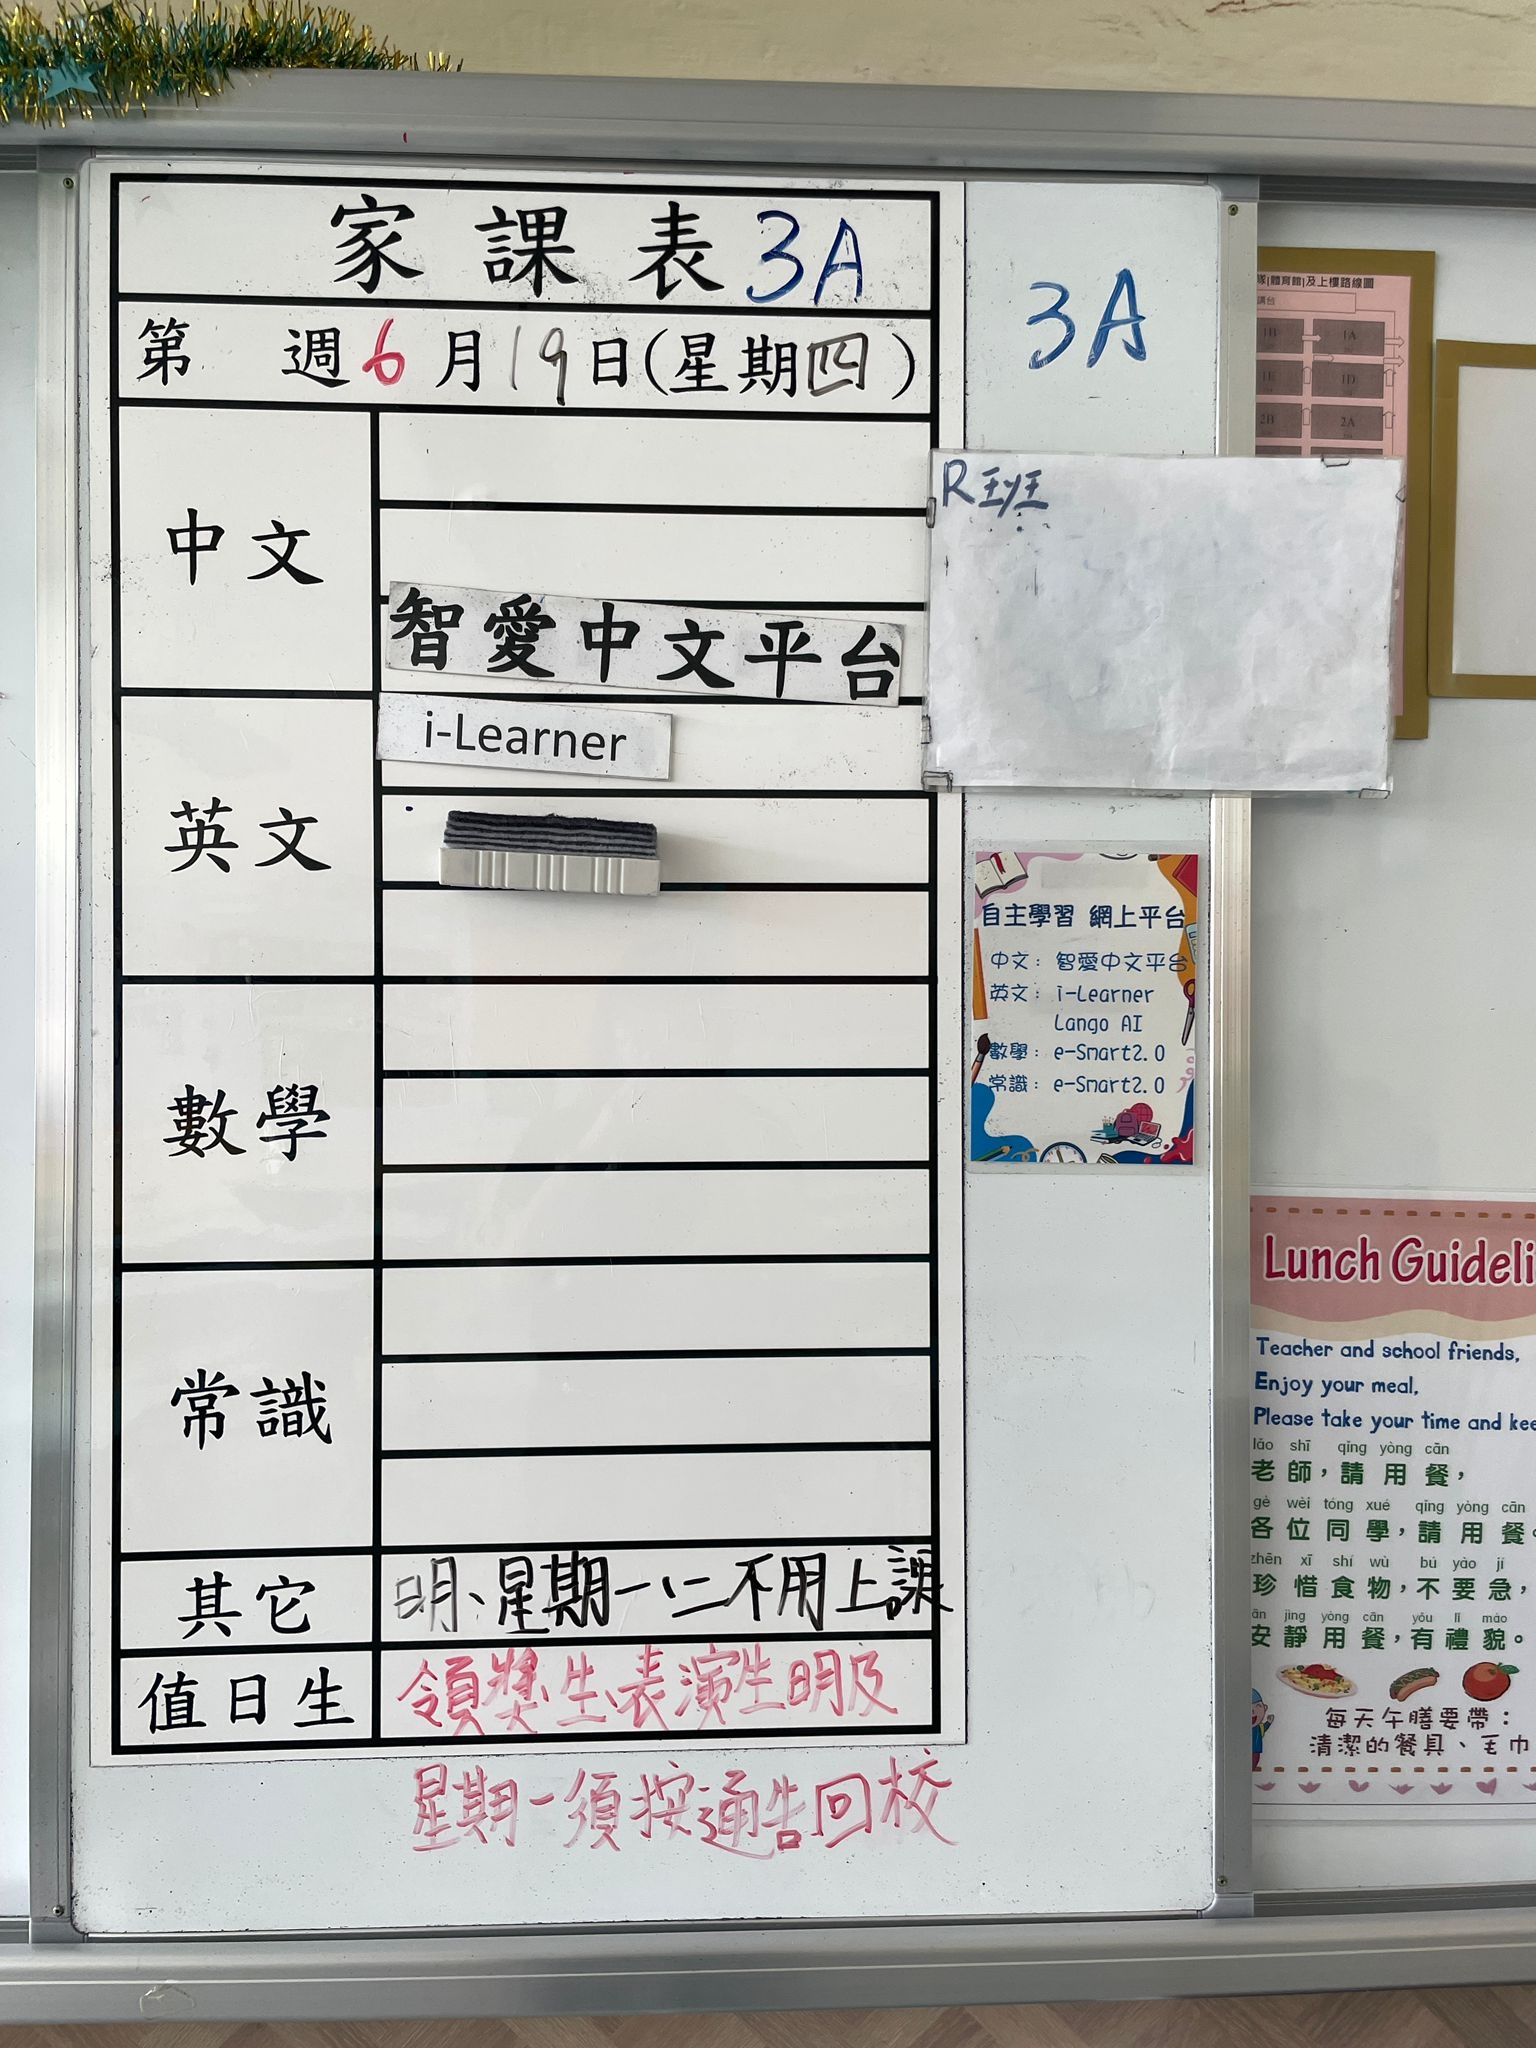 家課表 3A
第 週 6月19日(星期四)
中文
智愛中文平台
英文
i-Learner
數學
常識
其它
明、星期一、二不用上課
值日生
領獎生、表演生明及
星期一須按通告回校
3A
R班:
自主學習 網上平台
中文: 智愛中文平台
英文: i-Learner
Lango AI
數學: e-Smart2.0
常識: e-Smart2.0
隊|體育館|及上樓路線圖
講台
1B 1A
1E 1D
2B 2A
Lunch Guideli
Teacher and school friends,
Enjoy your meal,
Please take your time and kee
lǎo shī qǐng yòng cān
老師,請用餐,
gè wèi tóng xué qǐng yòng cān
各位同學,請用餐。
zhēn xī shí wù bú yào jí
珍惜食物,不要急,
ān jìng yòng cān yǒu lǐ mào
安靜用餐,有禮貌。
每天午膳要帶:
清潔的餐具、毛巾